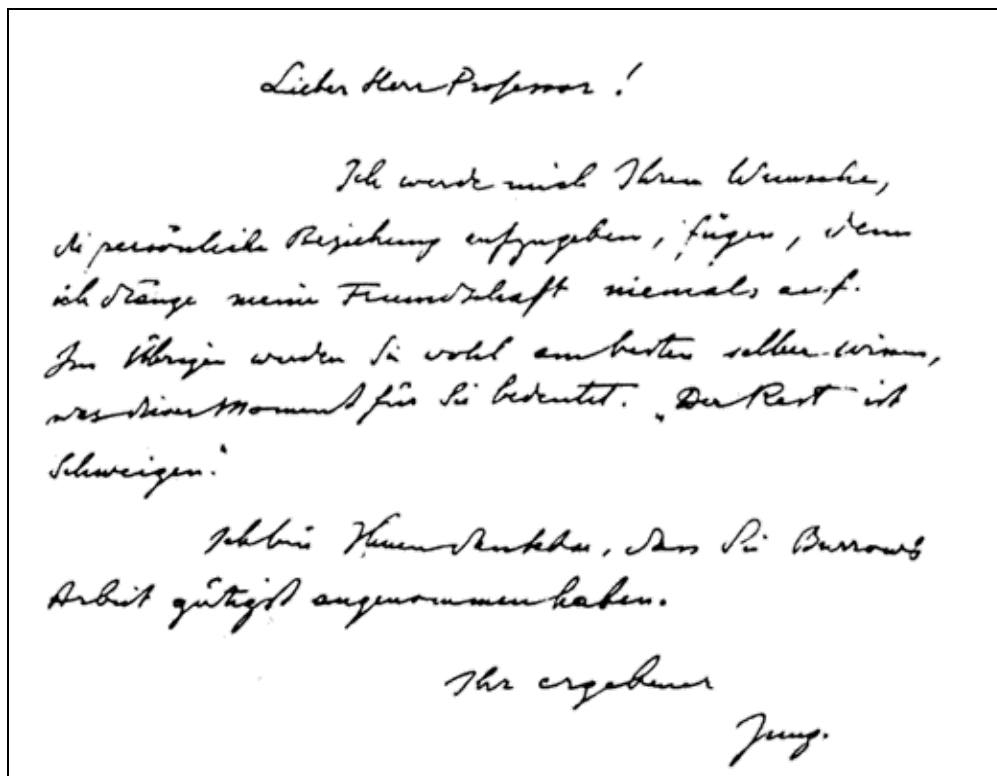 Lieber Herr Professor!
Ich werde mich Ihrem Wunsche,
die persönliche Beziehung aufzugeben, fügen, denn
ich dränge meine Freundschaft niemals auf.
Im Übrigen werden Sie wohl am besten selber wissen,
was dieser Moment für Sie bedeutet. „Der Rest ist
Schweigen."
Ich bin Ihnen dankbar, dass Sie Burrow's
Arbeit gütigst angenommen haben.
Ihr ergebener
Jung.